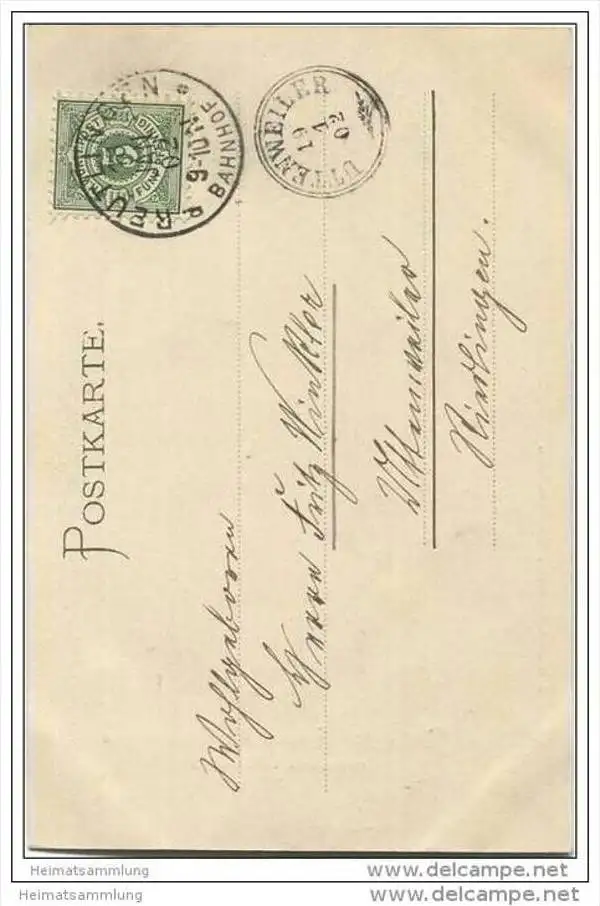 POSTKARTE.
REUTLINGEN
BAHNHOF
9-10
UTTENWEILER
19
1
02
Wohlgeboren
Herrn Fritz Winkler
Uttenweiler
Riedlingen.
Heimatsammlung
www.delcampe.net
Heimatsammlung
www.delcampe.net